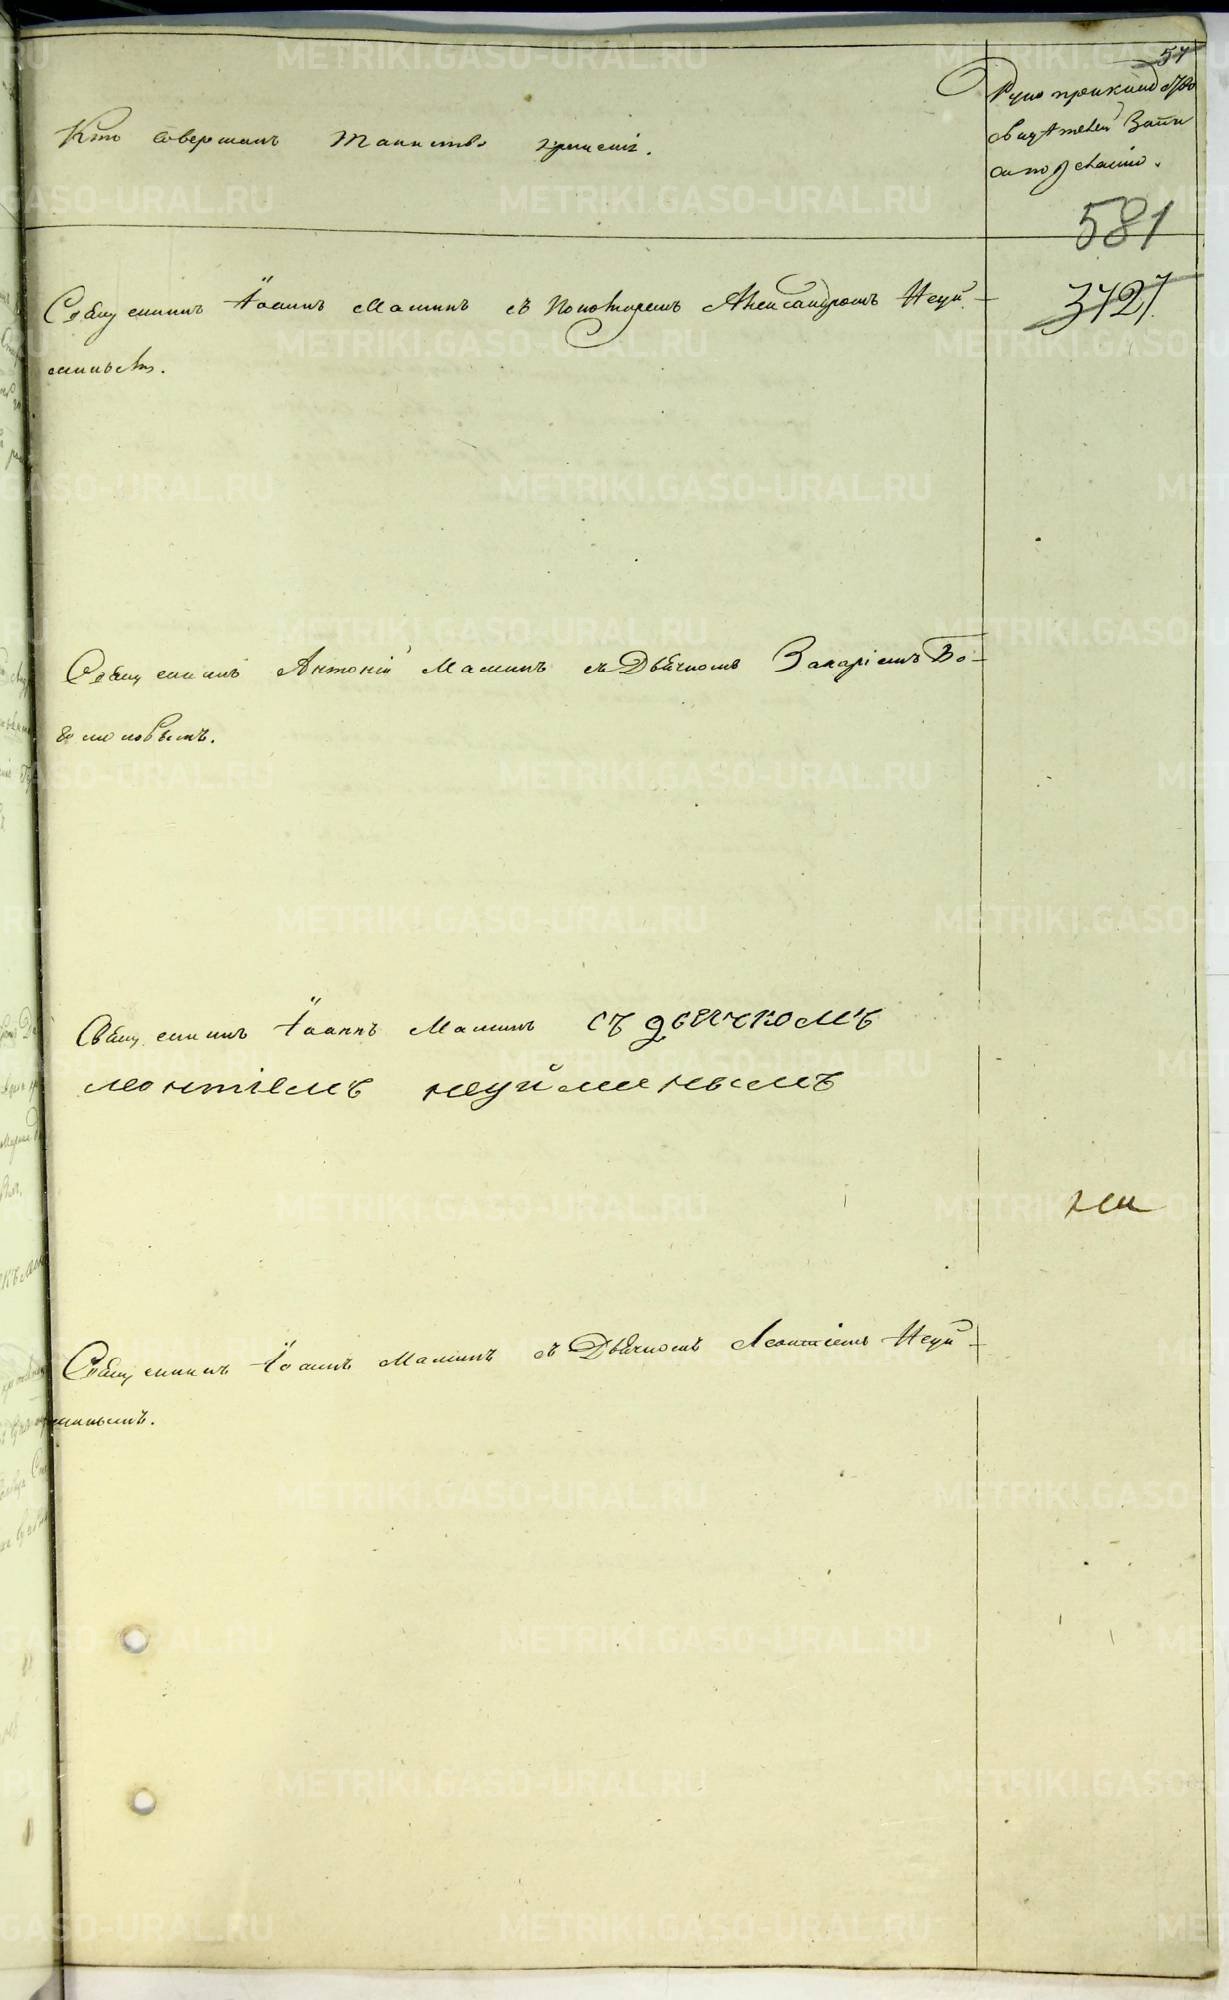 57
Кто совершалъ таинство крещенiя.
Рукоприкладство
свидѣтелей запи
си по желанiю.
581
3427
Священникъ Iоаннъ Маминъ съ Пономаремъ Александромъ Неуй-
минымъ.
Священникъ Антонiй Маминъ съ Дьячкомъ Захарiемъ Бо-
гомоловымъ.
Священникъ Iоаннъ Маминъ съ дьячкомъ
леонтiемъ неуйминымъ
Священникъ Iоаннъ Маминъ съ Дьячкомъ Леонтiемъ Неуй-
минымъ.
METRIKI.GASO-URAL.RU